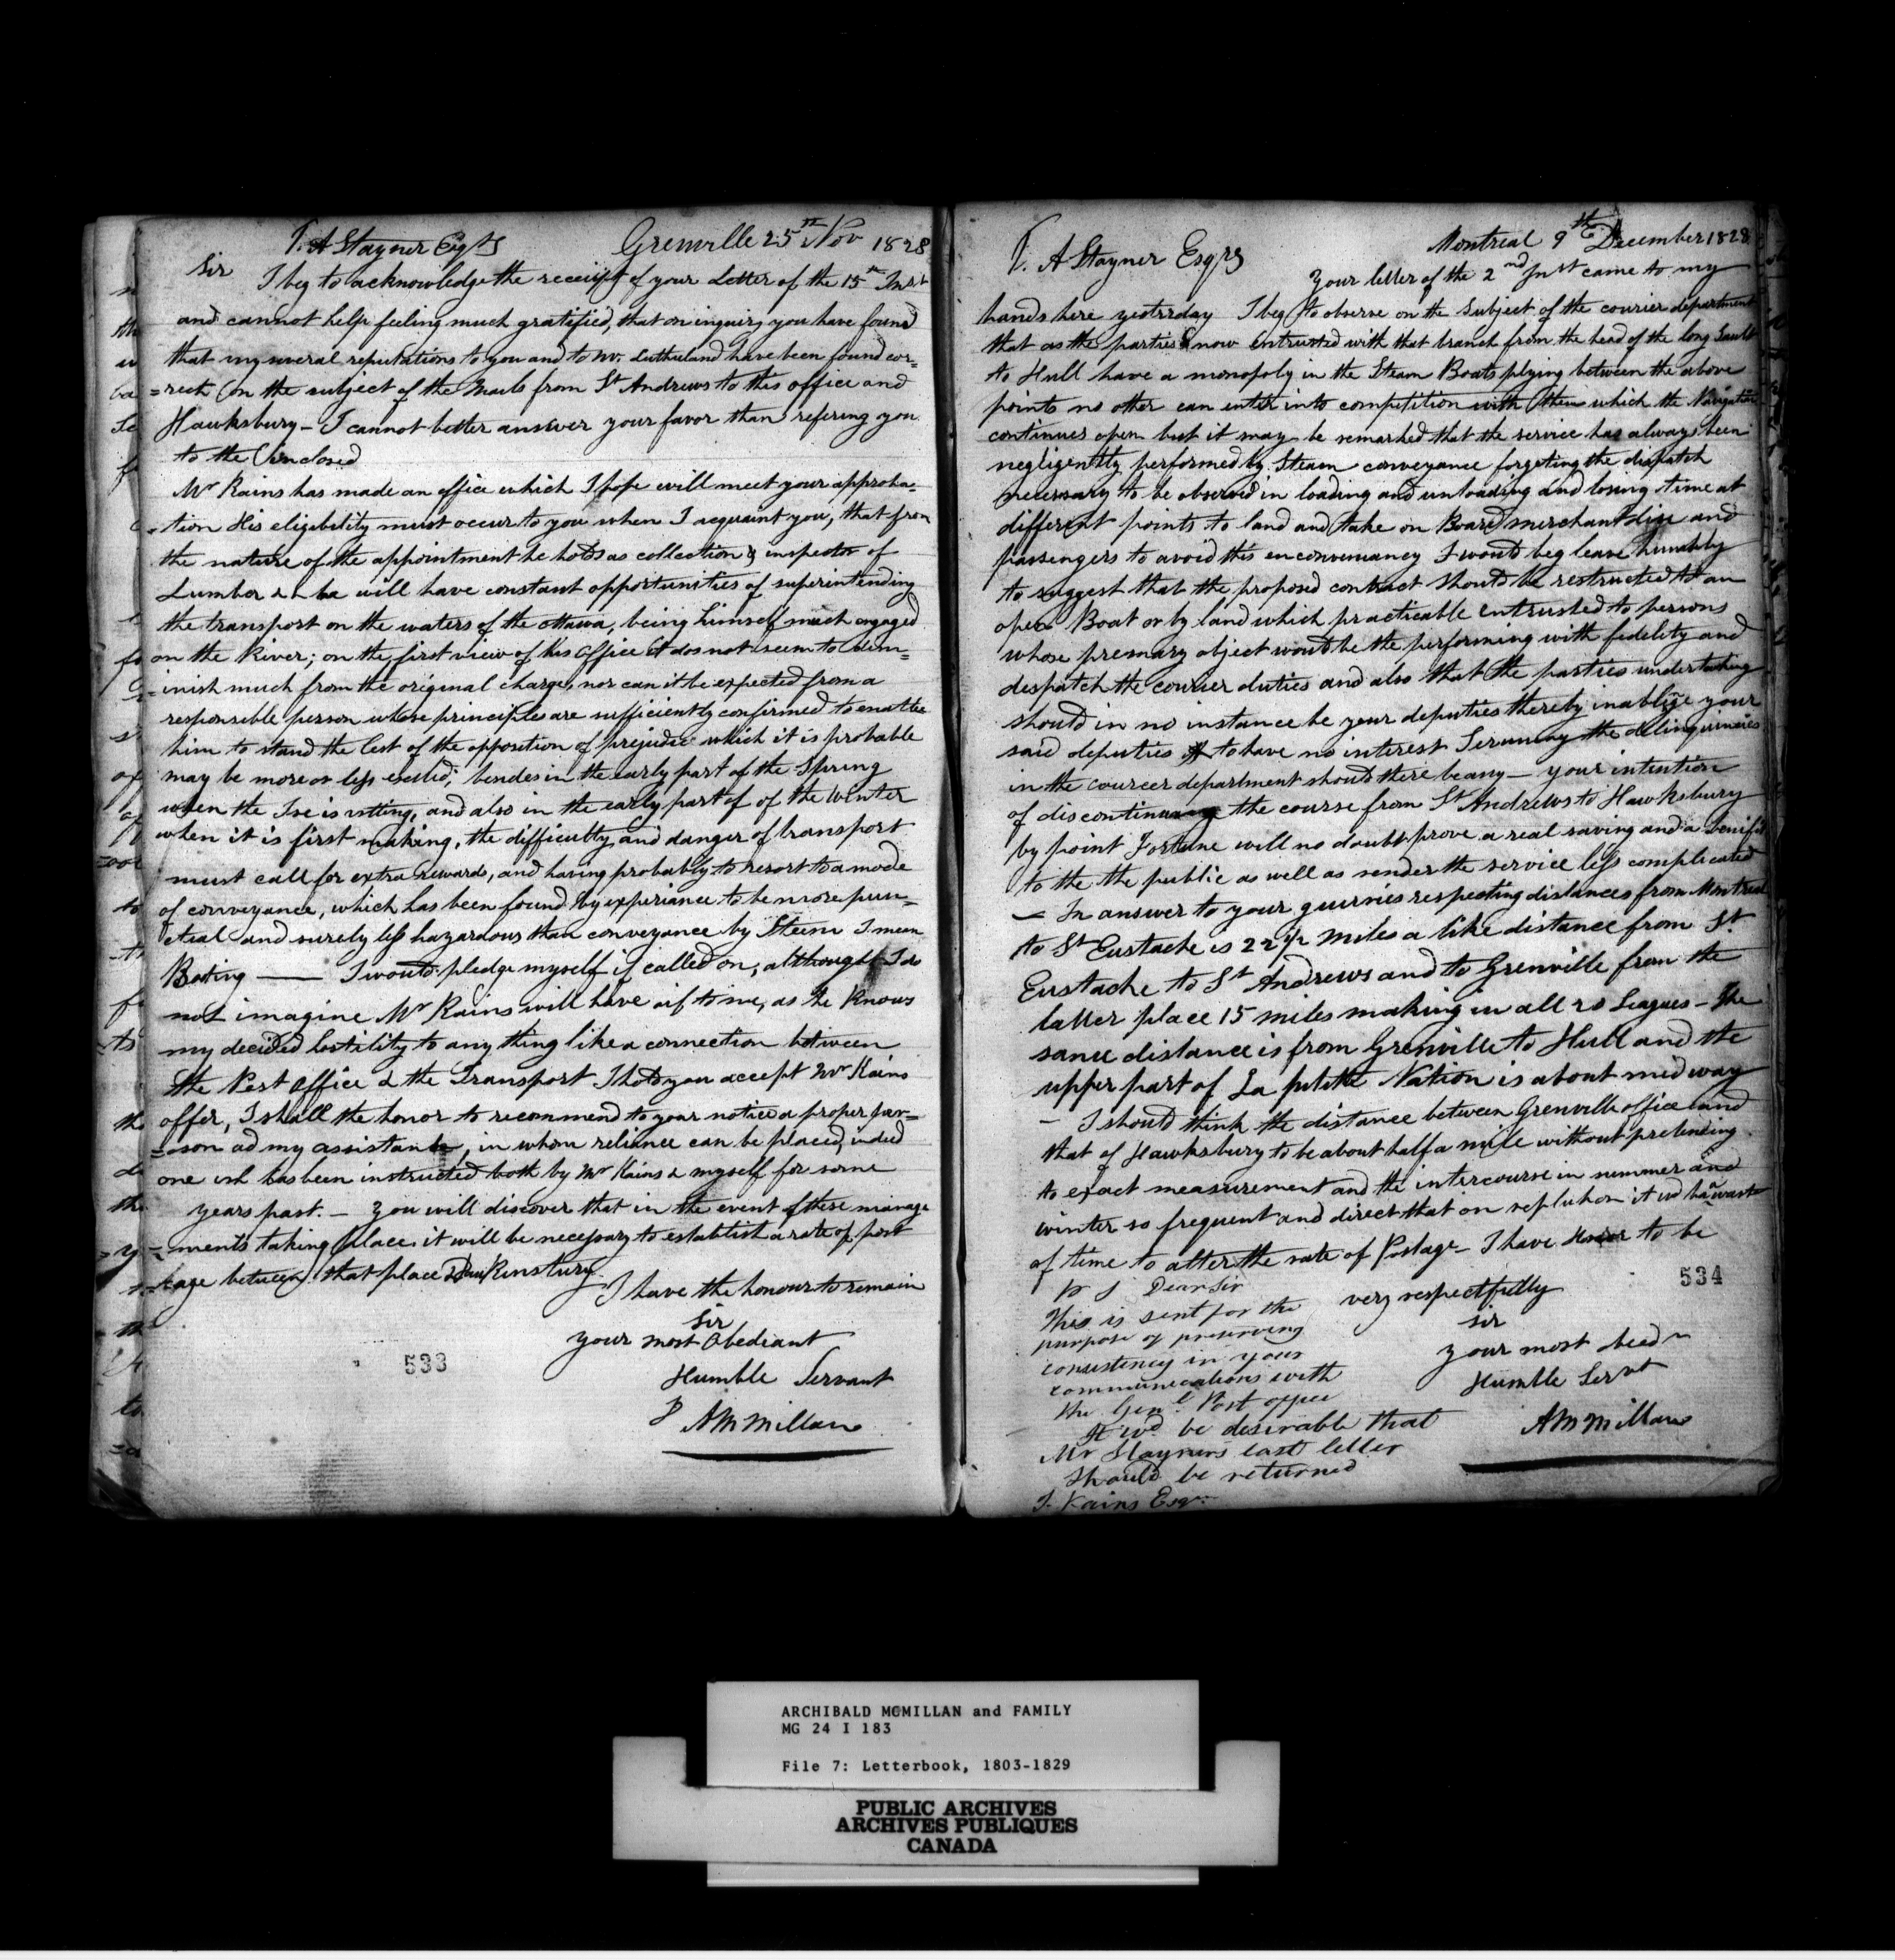 T. A Stayner Esqrs Grenville 25th Nov 1828
Sir I beg to acknowledge the receipt of your Letter of the 15th Inst
and cannot help feeling much gratified, that on inquiry you have found
that my several reputations to you and to Mr. Sutherland have been found cor=
=rect on the subject of the Mails from St Andrews to this office and
Hawksbury - I cannot better answer your favor than refering you
to the enclosed
Mr Kains has made an office which I hope will meet your approba=
=tion His eligibility must occur to you when I acquaint you, that from
the nature of the appointment he holds as collection & inspector of
Lumber &c he will have constant opportunities of superintending
the transport on the waters of the ottawa, being himself much engaged
on the River; on the first view of his office it dos not seem to dim=
=inish much from the original charge, nor can it be expected from a
responsible person whose principles are sufficiently confirmed to enable
him to stand the test of the opposition of prejudice which it is probable
may be more or less excited; besides in the early part of the Spring
when the Ise is rotting, and also in the early part of of the Winter
when it is first making, the difficulty and danger of transport
must call for extra rewards, and having probably to resort to a mode
of conveyance, which has been found by experiance to be more pun=
ctual and surely less hazardous than conveyance by Steem I mean
Boating —— I would pledge myself if called on, although I do
not imagine Mr Kains will have it to me, as he knows
my decided hostility to any thing like a connection between
the Post office & the Transport Should you accept Mr Kains
offer, I shall the honor to recommend to your notice a proper per=
=son ad my assistant, in whom reliance can be placed, indeed
one wh has been instructed both by Mr Kains & myself for some
years past. - you will discover that in the event of these manage
=ments taking place it will be necessary to establish a rate of post
=tage between that place &
I have the honour to remain
Sir
your most Obediant
Humble Servant
AMcMillan
533
T. A Stayner Esqrs Montreal 9th December 1828
Your letter of the 2nd Inst came to my
hands here yestrday I beg to observe on the subject of the courier department
that as the parties now entrusted with that branch from the head of the long Sault
to Hull have a monopoly in the Steam Boats plying between the above
points no other can enter into competition with them which the Navigation
continues open but it may be remarked that the service has always been
negligently performed by Steam conveyance forgeting the dispatch
necessary to be observed in loading and unloading and losing time at
different points to land and take on Board merchantdise and
passengers to avoid this enconveniancy I would beg leave humbly
to suggest that the proposed contract should be restructed to an
open Boat or by land which practicable entrusted to persons
whose premary object would be the performing with fidelity and
despatch the courier duties and also that the parties undertaking
should in no instance be your deputies thereby inabling your
said deputies to have no interest the delinquincies
in the courcer department should there be any - your intention
of discontinuing the course from St Andrews to Hawksbury
by point Fortune will no doubt prove a real saving and a benifit
to the the public as well as render the service less complicated
- In answer to your queiries respecting distances from Montreal
to St Eustache is 22 1/2 Miles a like distance from St
Eustache to St Andrews and to Grenville from the
latter place 15 miles making in all 20 Leagues - The
same distance is from Grenville to Hull and the
upper part of La petite Nation is about midway
- I should think the distance between Grenville office and
that of Hawksbury to be about half a mile without pretending
to exact measurement and the intercourse in summer and
winter so frequent and direct that on it wd be a waste
of time to alter the rate of Postage - I have Honor to be
very respectfully
Sir
your most obedn
Humble Servt
AMcMillan
534
P S Dear Sir
This is sent for the
purpose of preserving
consistency in your
communications with
the Genl Post office
It wd be desirable that
Mr Stayners last letter
should be returned
T. Kains Esqr
ARCHIBALD MCMILLAN and FAMILY
MG 24 I 183
File 7: Letterbook, 1803-1829
PUBLIC ARCHIVES
ARCHIVES PUBLIQUES
CANADA